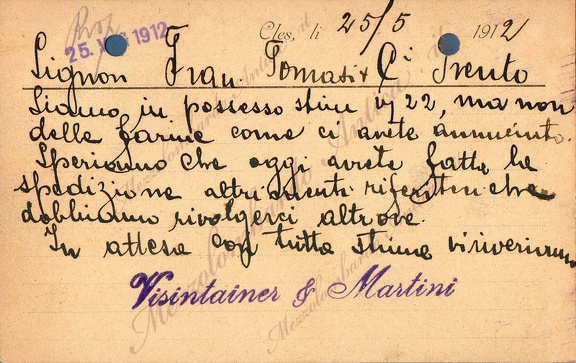 25. MAG 1912
Cles, li 25/5 1912
Signori Fran. Tomasi & Ci Trento
Siamo in possesso stim. 22, ma non
delle farine come ci avete annunciato.
Speriamo che oggi avrete fatta la
spedizione altrimenti che
dobbiamo rivolgerci altrove.
In attesa con tutta stima vi riveriamo
Visintainer & Martini
Mezzolombardo